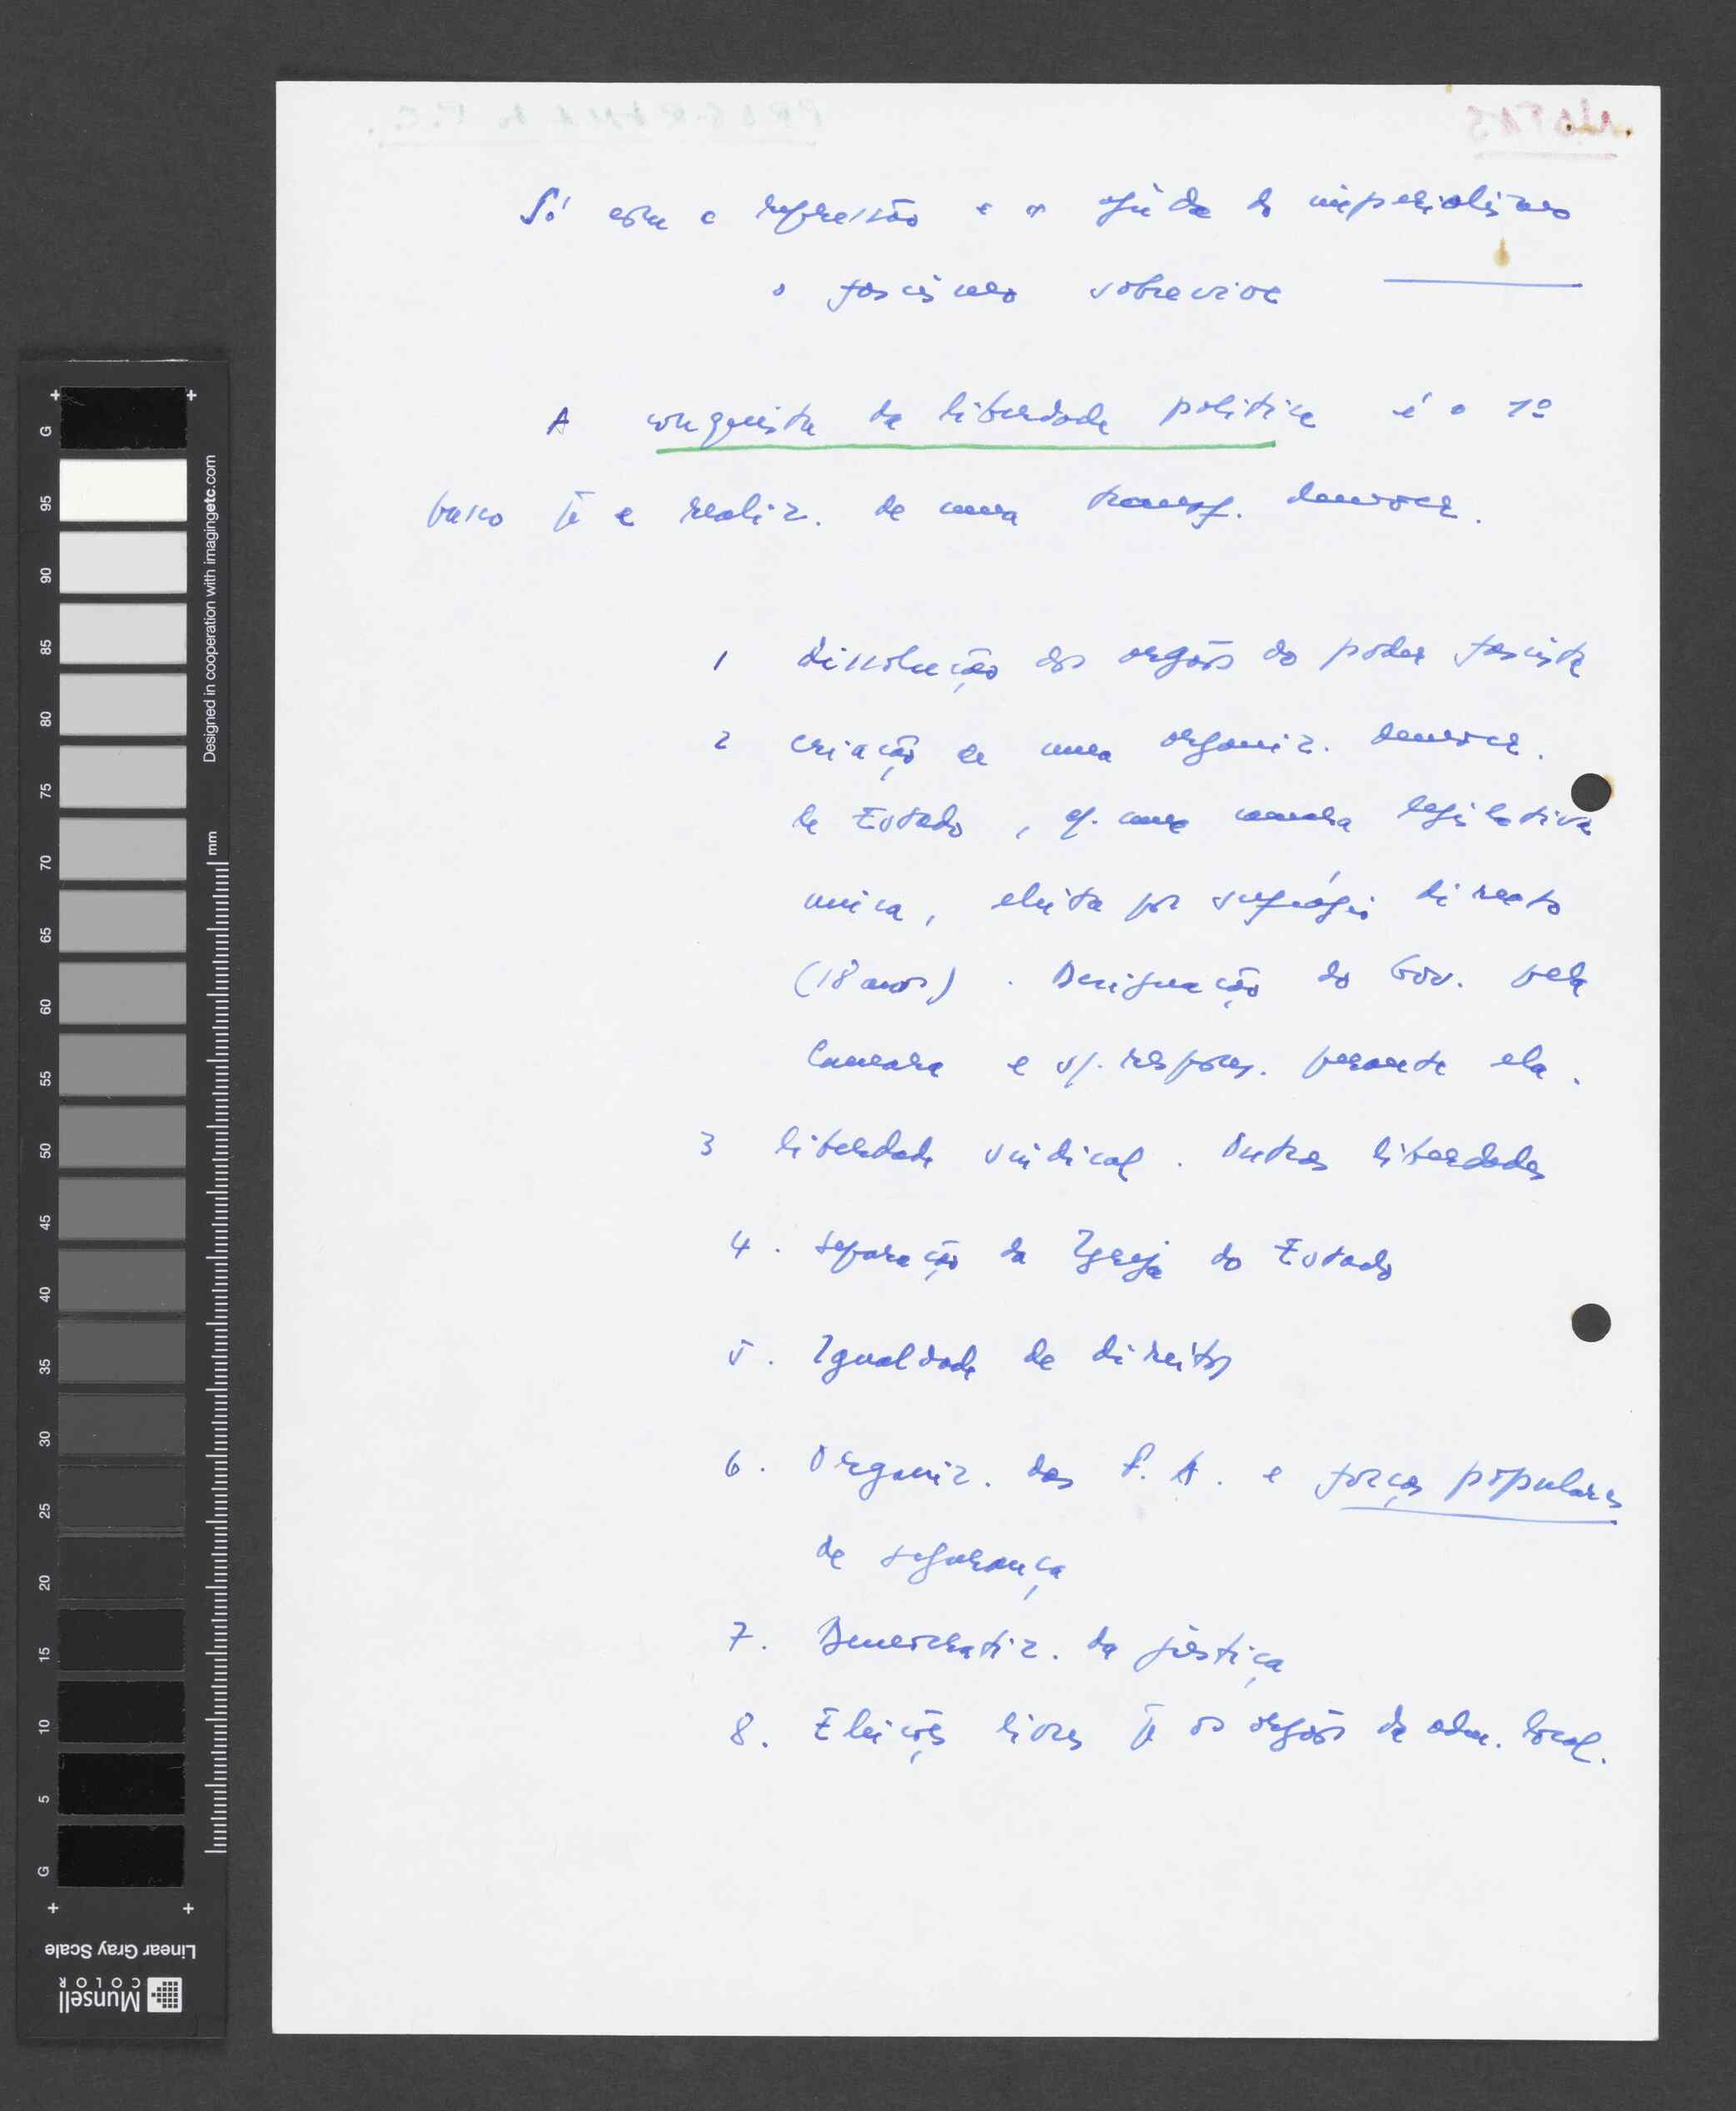 Só com a repressão e a ajuda do imperialismo
o fascismo sobrevive
A conquista da liberdade politica é o 1º
passo p/ a realiz. de uma transf. democr.
1 dissolução dos orgãos do poder fascista
2 criação de uma organiz. democr.
de Estado, c/. uma camara legislativa
unica, eleita por sufrágio directo
(18 anos). Designação do Gov. pela
Camara e s/. respons. perante ela.
3 liberdade sindical. Outras liberdades
4. separação da Igreja do Estado
5. Igualdade de direitos
6. Organiz. das F. A. e forças populares
de segurança
7. Democratiz. da justiça
8. Eleições livres p/ os orgãos de adm. local.
NOTAS
PROGRAMA do P.C.
G 95 90 85 80 75 70 65 60 55 50 45 40 35 30 25 20 15 10 5 G
Designed in cooperation with imagingetc.com
mm
Linear Gray Scale
Munsell
COLOR